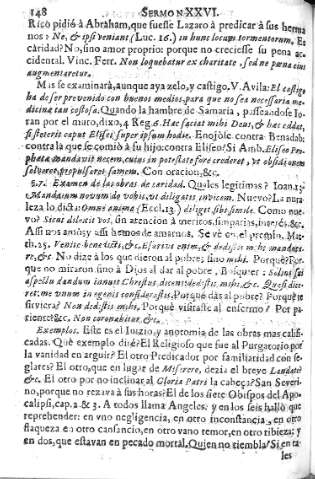 148 SERMON XXVI.
Rico pidió à Abraham, que fuesse Lazaro à predicar à sus herma
nos: Ne, & ipsi veniant (Luc. 16.) in hunc locum tormentorum. Es
caridad? No, sino amor proprio: porque no creciesse su pena acci
dental. Vinc. Ferr. Non loquebatur ex charitate, sed ne pœna eius
augmentaretur.
Mas se examinarà, aunque aya zelo, y castigo. V. Avila: El castigo
ha de ser prevenido con buenos medios, para que no sea necessaria me-
dicina tan costosa. Quando la hambre de Samaria, passeandose Jo-
ran por el muro, dixo, 4. Reg. 6. Hæc faciat mihi Deus, & hæc addat,
si steterit caput Elisei super ipsum hodie. Enojòse contra Benadab:
contra la que se comió à su hijo: contra Eliseo? Si. Amb. Eliseo Pro-
pheta mandavit necem, cuius in potestate fore crederet, vt obsidionem
solveret, propulsaret famem. Con oracion, &c.
§. 7. Examen de las obras de caridad. Quales legitimas? Ioan. 13.
Mandatum novum do vobis, vt diligatis invicem. Nuevo? La natura
leza lo dicta: Omni anima (Eccl. 13.) diliget sibi simile. Como nue-
vo? Sicut dilexi vos, sin atencion à meritos, simpatias, interés, &c.
Assi nos amò, y assi hemos de amarnos. Se vè en el premio, Mat-
th. 25. Venite benedicti, &c. Esurivi enim, & dedistis mihi manduca-
re, &c. No dize à los que dieron al pobre; sino mihi. Porquè? Por-
que no miraron, sino à Dios al dar al pobre,
Porquè dàs al pobre? Porquè te
sirviera? Non dedistis mihi. Porquè visitaste al enfermo? Por pa-
riente? &c. Non coronabitur, &c.
Exemplos. Este es el Iuizio, y anotomia de las obras mas califi-
cadas. Què exemplo diré? El Religioso que fue al Purgatorio por
la vanidad en arguir? El otro Predicador por familiaridad con se-
glares? El otro, que en lugar de Miserere, dezia el breve Laudate
&c. El otro por no inclinar al Gloria Patri la cabeça? San Severi-
no, porque no rezava à sus horas? El de los siete Obispos del Apo-
calipsi, cap. 2. & 3. A todos llama Angeles: y en los seis hallò que
reprehender: en vno negligencia, en otro inconstancia, en otro
flaqueza, en otro cansancio, en otro vano temor, en otro tibieza; y
en dos, que estavan en pecado mortal, Quien no tiembla! Si en ta-
les